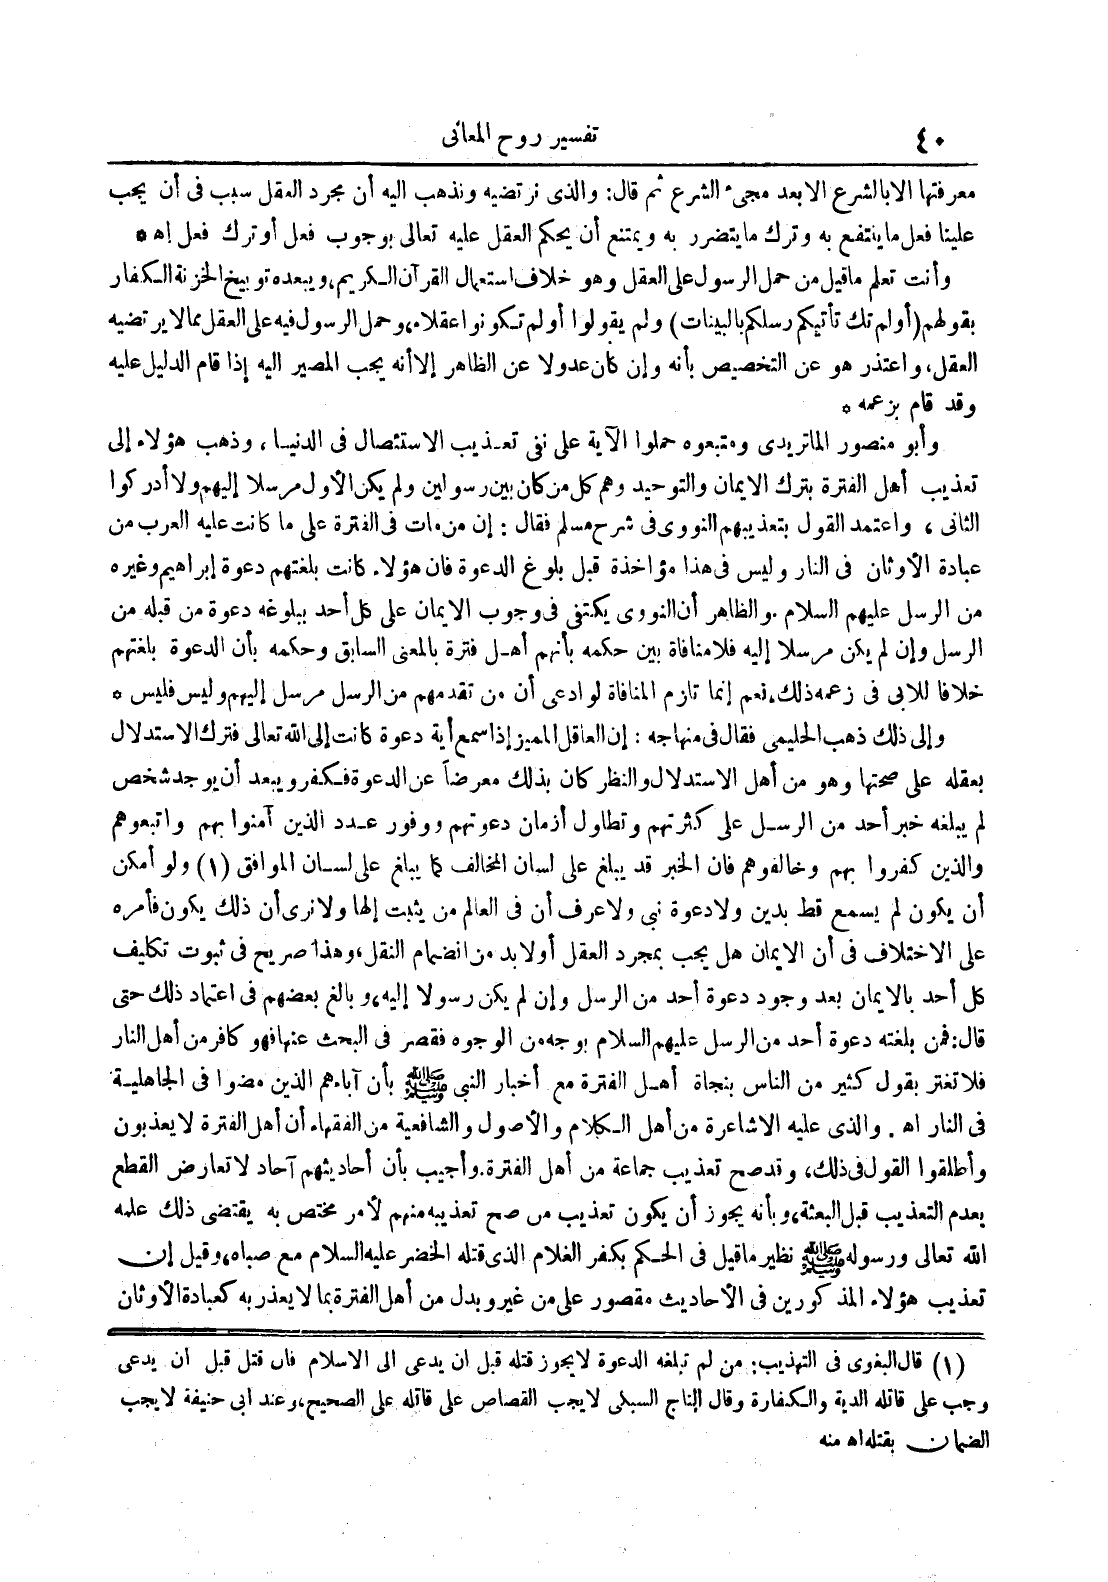 ٤٠
تفسير روح المعانى
معرفتها الا بالشرع الا بعد مجىء الشرع ثم قال: والذى نرتضيه ونذهب اليه أن مجرد العقل سبب فى أن يجب
علينا فعل ما ينتفع به وترك ما يتضرر به ويمتنع أن يحكم العقل عليه تعالى بوجوب فعل أو ترك فعل اه *
وأنت تعلم ماقيل من حمل الرسول على العقل وهو خلاف استعمال القرآن الكريم، ويبعده توبيخ الخزنة الكفار
بقولهم (أو لم تك تأتيكم رسلكم بالبينات) ولم يقولوا أو لم تكونوا عقلاء، وحمل الرسول فيه على العقل مما لا يرتضيه
العقل، واعتذر هو عن التخصيص بأنه وإن كان عدولا عن الظاهر إلا أنه يجب المصير اليه إذا قام الدليل عليه
وقد قام بزعمه *
وأبو منصور الماتريدى ومتبعوه حملوا الآية على نفى تعذيب الاستئصال فى الدنيا ، وذهب هؤلاء إلى
تعذيب أهل الفترة بترك الايمان والتوحيد وهم كل من كان بين رسولين ولم يكن الأول مرسلا إليهم ولا أدركوا
الثانى ، واعتمد القول بتعذيبهم النووى فى شرح مسلم فقال : إن من مات فى الفترة على ما كانت عليه العرب من
عبادة الأوثان فى النار وليس فى هذا مؤاخذة قبل بلوغ الدعوة فان هؤلاء كانت بلغتهم دعوة إبراهيم وغيره
من الرسل عليهم السلام .والظاهر أن النووى يكتفى فى وجوب الايمان على كل أحد ببلوغه دعوة من قبله من
الرسل وإن لم يكن مرسلا إليه فلا منافاة بين حكمه بأنهم أهل فترة بالمعنى السابق وحكمه بأن الدعوة بلغتهم
خلافا للابى فى زعمه ذلك، نعم إنما تلزم المنافاة لو ادعى أن من تقدمهم من الرسل مرسل إليهم وليس فليس *
وإلى ذلك ذهب الحليمى فقال فى منهاجه : إن العاقل المميز إذا سمع أية دعوة كانت إلى الله تعالى فترك الاستدلال
بعقله على صحتها وهو من أهل الاستدلال والنظر كان بذلك معرضاً عن الدعوة فكفر ويبعد أن يوجد شخص
لم يبلغه خبر أحد من الرسل على كثرتهم وتطاول أزمان دعوتهم ووفور عدد الذين آمنوا بهم واتبعوهم
والذين كفروا بهم وخالفوهم فان الخبر قد يبلغ على لسان المخالف كما يبلغ على لسان الموافق (١) ولو أمكن
أن يكون لم يسمع قط بدين ولا دعوة نبى ولا عرف أن فى العالم من يثبت إلها ولا نرى أن ذلك يكون فأمره
على الاختلاف فى أن الايمان هل يجب بمجرد العقل أو لا بد من انضمام النقل، وهذا صريح فى ثبوت تكليف
كل أحد بالايمان بعد وجود دعوة أحد من الرسل وإن لم يكن رسولا إليه، وبالغ بعضهم فى اعتماد ذلك حتى
قال: فمن بلغته دعوة أحد من الرسل عليهم السلام بوجه من الوجوه فقصر فى البحث عنها فهو كافر من أهل النار
فلا تغتر بقول كثير من الناس بنجاة أهل الفترة مع أخبار النبى ﷺ بأن آباءهم الذين مضوا فى الجاهلية
فى النار اه . والذى عليه الاشاعرة من أهل الكلام والأصول والشافعية من الفقهاء أن أهل الفترة لا يعذبون
وأطلقوا القول فى ذلك، وقد صح تعذيب جماعة من أهل الفترة.وأجيب بأن أحاديثهم آحاد لا تعارض القطع
بعدم التعذيب قبل البعثة، وبأنه يجوز أن يكون تعذيب من صح تعذيبه منهم لأمر مختص به يقتضى ذلك علمه
الله تعالى ورسوله ﷺ نظير ماقيل فى الحكم بكفر الغلام الذى قتله الخضر عليه السلام مع صباه، وقيل إن
تعذيب هؤلاء المذكورين فى الأحاديث مقصور على من غير وبدل من أهل الفترة بما لا يعذر به كعبادة الأوثان
(١) قال البغوى فى التهذيب: من لم تبلغه الدعوة لايجوز قتله قبل ان يدعى الى الاسلام فان قتل قبل ان يدعى
وجب على قاتله الدية والكفارة وقال التاج السبكى لايجب القصاص على قاتله على الصحيح، وعند ابى حنيفة لايجب
الضمان بقتله اه منه